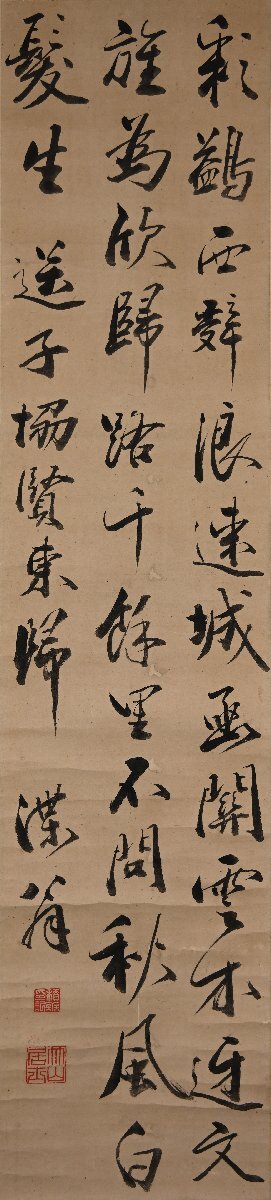 彩鷁西辭浪速城函關雲木迓文
旌為欣歸路千餘里不問秋風白
髮生 送子協賢東歸 渫翁